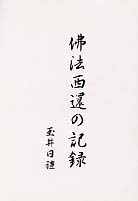 佛法西還の記録
玉井日禮